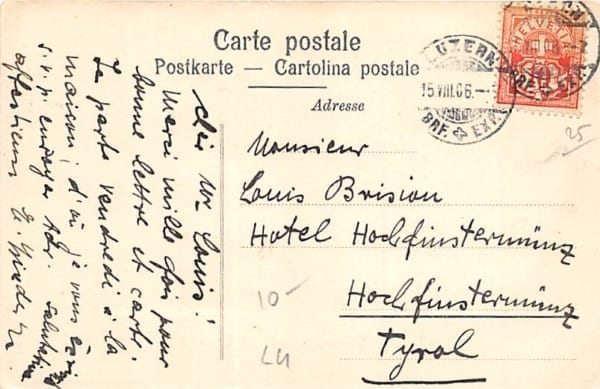 Carte postale
Postkarte — Cartolina postale
Adresse
HELVETIA
LUZERN
15.VIII.06.—
BRF. EXP.
25
cher Mr Louis!
Merci mille fois pour
bonne lettre et carte.
Je parts vendredi à la
maison, d'où je vous
s.v.p. envoyer Adr.
Monsieur
Louis Brision
Hotel Hochfinstermünz
Hochfinstermünz
Tyrol
10-
LU